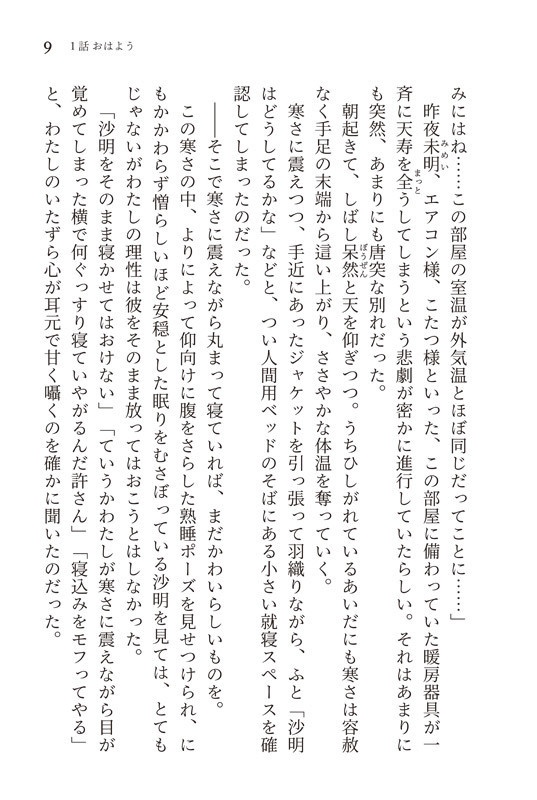 9
1話 おはよう
みにはね……この部屋の室温が外気温とほぼ同じだってことに……」
昨夜未明、エアコン様、こたつ様といった、この部屋に備わっていた暖房器具が一
斉に天寿を全うしてしまうという悲劇が密かに進行していたらしい。それはあまりに
も突然、あまりにも唐突な別れだった。
朝起きて、しばし呆然と天を仰ぎつつ。うちひしがれているあいだにも寒さは容赦
なく手足の末端から這い上がり、ささやかな体温を奪っていく。
寒さに震えつつ、手近にあったジャケットを引っ張って羽織りながら、ふと「沙明
はどうしてるかな」などと、つい人間用ベッドのそばにある小さい就寝スペースを確
認してしまったのだった。
――そこで寒さに震えながら丸まって寝ていれば、まだかわいらしいものを。
この寒さの中、よりによって仰向けに腹をさらした熟睡ポーズを見せつけられ、に
もかかわらず憎らしいほど安穏とした眠りをむさぼっている沙明を見ては、とても
じゃないがわたしの理性は彼をそのまま放ってはおこうとはしなかった。
「沙明をそのまま寝かせてはおけない」「ていうかわたしが寒さに震えながら目が
覚めてしまった横で何ぐっすり寝ていやがるんだ許さん」「寝込みをモフってやる」
と、わたしのいたずら心が耳元で甘く囁くのを確かに聞いたのだった。
みめい
まっと
ぼうぜん